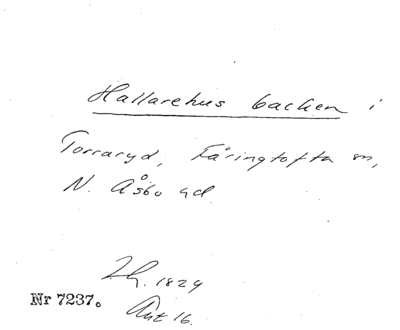 Hallarehus backen i
Torraryd, Fåringtofta sn,
N. Åsbo hd
Lh. 1829
Nr 7237.
Ant 16.